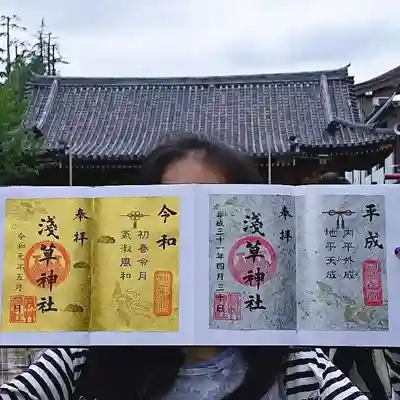 令和
初春令月
氣淑風和
奉拝
淺草神社
令和元年五月 日
平成
内平外成
地平天成
奉拝
淺草神社
平成三十一年四月三十日